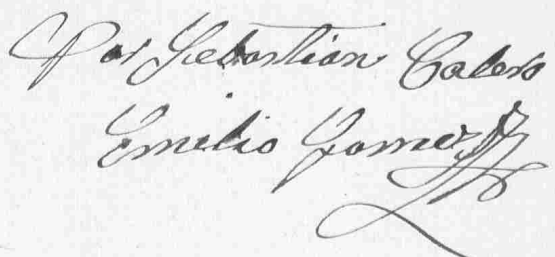 Por Sebastian Calero
Emilio Gomez